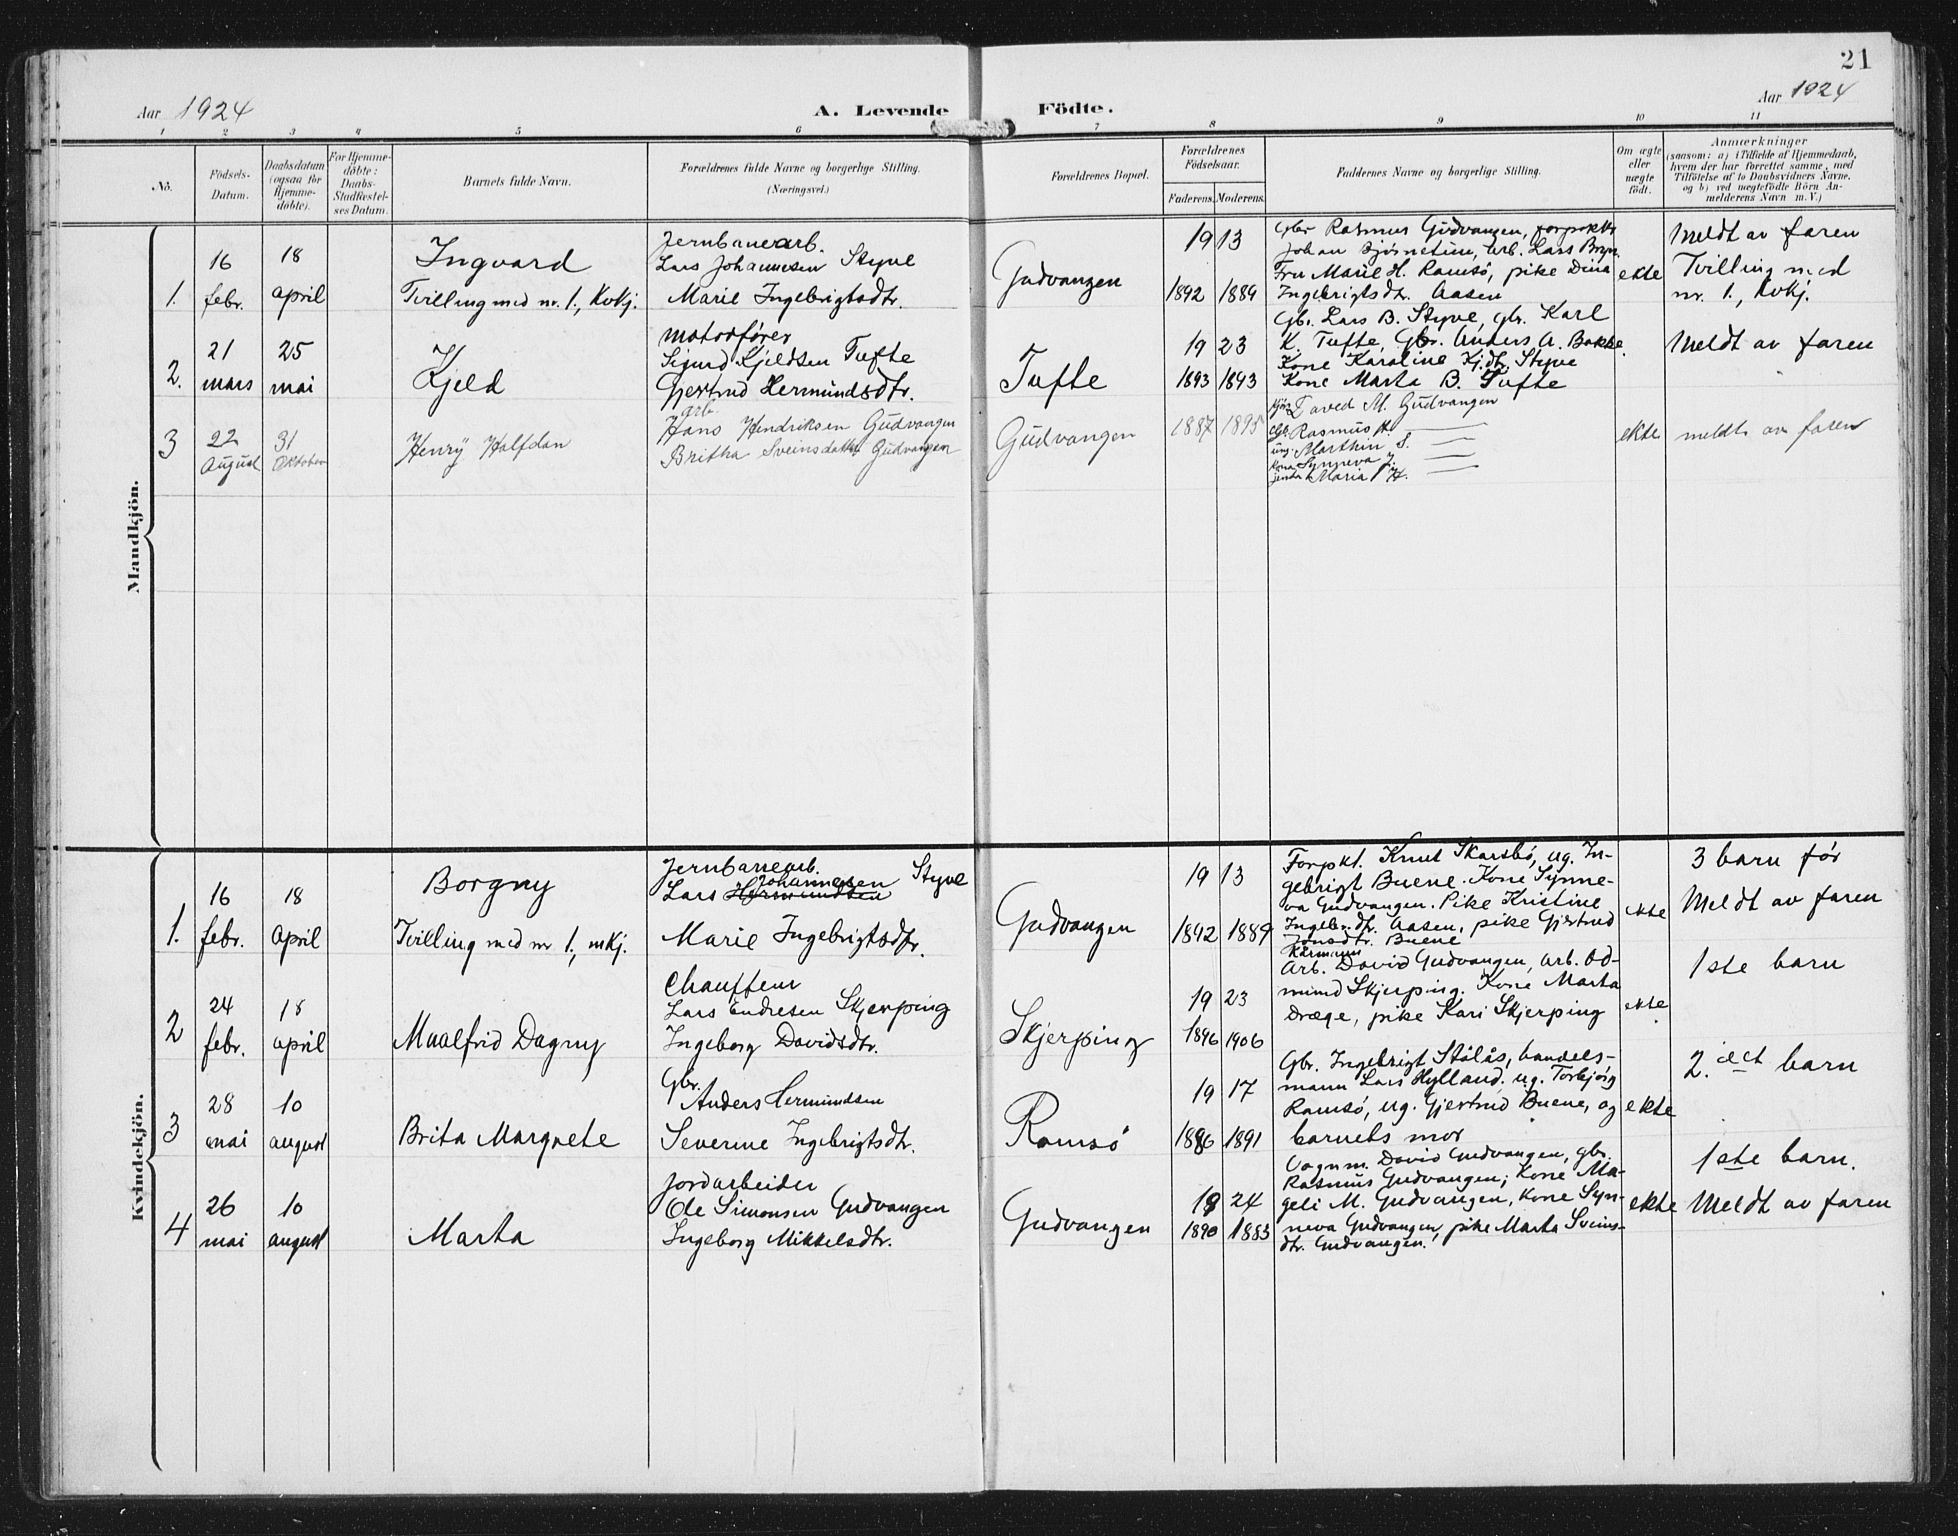 21
Aar 1924
A. Levende Födte.
Aar 1924
1 2 3 4 5 6 7 8 9 10 11
No.
Födsels-Datum.
Daabsdatum (ogsaa for Hjemme-döbte).
For Hjemme-döbte: Daabs-Stadfæstel-ses Datum.
Barnets fulde Navn.
Forældrenes fulde Navne og borgerlige Stilling.
(Næringsvei.)
Forældrenes Bopæl.
Forældrenes Födselsaar.
Faderens. Moderens.
Faddernes Navne og borgerlige Stilling.
Om ægte eller uægte födt.
Anmærkninger
(saasom: a) i Tilfælde af Hjemmedaab,
hvem der har forrettet samme, med
Tilföielse af to Daabsvidners Navne.
og b) ved uegtefödte Börn An-
melderens Navn m. V.)
Mandkjön.
1. 16 febr. 18 april
Ingvard
Tvilling med nr. 1., Kvkj.
Jernbanearb.
Lars Johannesen Styve
Marie Ingebrigtsdtr.
Gudvangen
19 13
1892 1889
Gbr Rasmus Gudvangen, forpakt.
Johan Bjørnetun, arb. Lars Bryn
Fru Marie H. Ramsö, pike Dina
Ingebrigtsdtr. Aasen
ekte
Meldt av faren
Tvilling med
nr. 1., Kvkj.
2. 21 mars 25 mai
Kjeld
Motorfører
Sigurd Kjeldsen Tufte
Gjertrud Hermundsdtr.
Tufte
19 23
1893 1893
Gbr. Lars B. Styve, gbr. Karl
K. Tufte, Gbr. Anders A. Bakke.
Kone Karoline Kj.dtr. Styve
Kone Marta B. Tufte
Meldt av faren
3 22 August 31 Oktober
Henrÿ Halfdan
arb.
Hans Hendriksen Gudvangen
Britha Sveinsdatter Gudvangen
Gudvangen
1887 1895
Taved M. Gudvangen
Gb. Rasmus H.
ung. Marthin S.
Kona Synneva J.
jenta Maria H.
ekte
meldt av faren
Kvindekjön.
1. 16 febr. 18 april
Borgny
Tvilling med nr 1., mkj.
Jernbanearb.
Johannesen
Lars Hermundsen Styve
Marie Ingebrigtsdtr.
Gudvangen
19 13
1892 1889
Forpkt. Knut Skarsbö, ug. In-
gebrigt Buene. Kone Synne-
va Gudvangen. Pike Kristine
Ingebr.dtr. Aasen, pike Gjertrud
Jonsdtr. Buene
ekte
3 barn før
Meldt av faren
2 24 febr. 18 april
Maalfrid Dagny
Chauffeur
Lars Endresen Skjerping
Ingeborg Davidsdtr.
Skjerping
19 23
1896 1906
Kårmann
Arb. David Gudvangen, arb. Od-
mund Skjerping. Kone Marta
Dræge, pike Kari Skjerping
ekte
1ste barn
3 28 mai 10 august
Brita Margrete
Gbr.
Anders Hermundsen
Severine Ingebrigtsdtr.
Ramsö
19 17
1886 1891
Gbr. Ingebrigt Stålås, handels-
mann Lars Hylland. ug. Torbjörg
Ramsö, ug. Gjertrud Buene, og
barnets mor
ekte
2. det barn
4 26 mai 10 august
Marta
Jordarbeider
Ole Simonsen Gudvangen
Ingeborg Mikkelsdtr.
Gudvangen
19 24
1890 1883
Vognm. David Gudvangen, gbr.
Rasmus Gudvangen; Kone Ma-
geli M. Gudvangen, Kone Syn-
neva Gudvangen, pike Marta Sveins-
dtr. Gudvangen.
ekte
1ste barn.
Meldt av faren